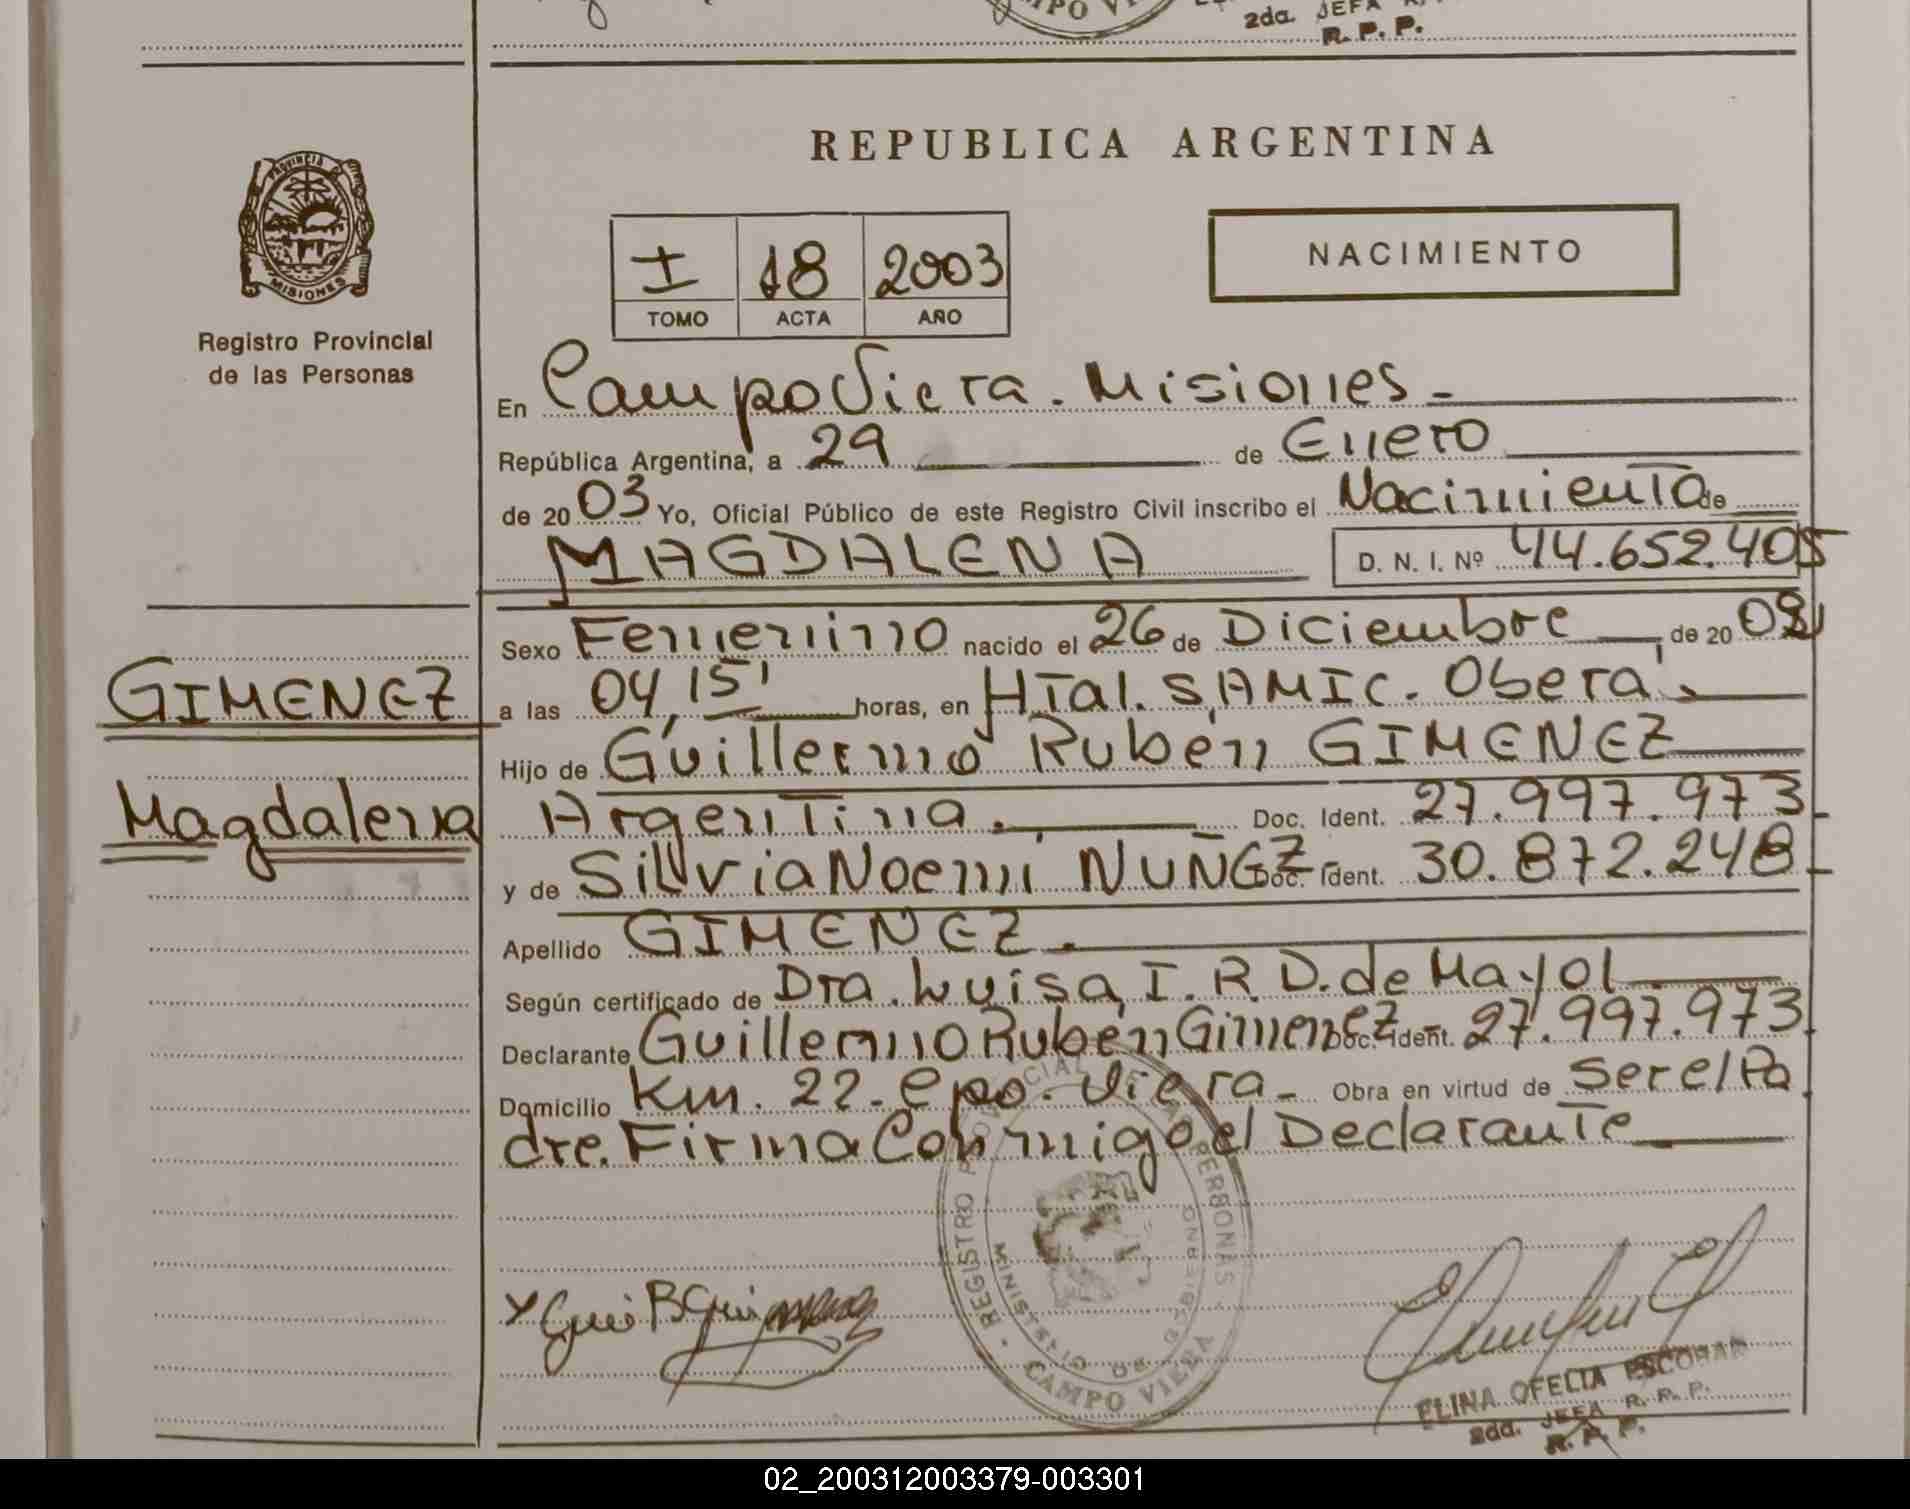 2da. JEFA
R. P. P.
REPUBLICA ARGENTINA
PROVINCIA DE
MISIONES
Registro Provincial
de las Personas
I 18 2003
TOMO ACTA AÑO
NACIMIENTO
En Campo Viera. Misiones.
República Argentina, a 29 de Enero
de 2003 Yo, Oficial Público de este Registro Civil inscribo el Nacimiento de
MAGDALENA D. N. I. Nº 44.652.405
Sexo Femenino nacido el 26 de Diciembre, de 20
GIMENEZ
a las 04,15' horas, en Htal. SAMIC. Oberá.
Hijo de Guillermo Rubén GIMENEZ
Magdalena
Argentina. Doc. Ident. 27.997.973
y de Silvia Noemi NUÑEZ Doc. Ident. 30.872.248
Apellido GIMENEZ.
Según certificado de Dra. Luisa I. R. D. de Mayol
Declarante Guillermo Rubén Gimenez Doc. Ident. 27.997.973
Domicilio Km. 22. Cpo. Viera Obra en virtud de Ser el Pa
dre. Firma Conmigo el Declarante
REGISTRO PROVINCIAL DE LAS PERSONAS
MINISTERIO DE GOBIERNO
CAMPO VIERA
ELINA OFELIA ESCOBAR
2da. JEFA R. P. P.
R. P. P.
02_200312003379-003301